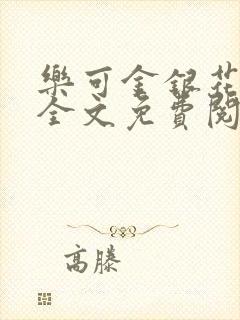 樂可金銀花
全文免費閱
高滕